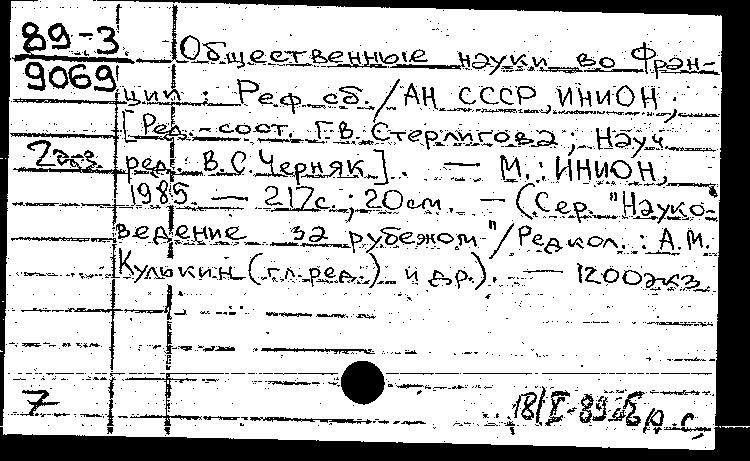 89-3
9069
2 экз
Общественные науки во Фран-
ции : Реф. сб. / АН СССР, ИНИОН ;
[Ред.-сост. Г.В. Стерлигова ; Науч.
ред. В.С. Черняк]. — М. : ИНИОН,
1985. — 217с. ; 20см. — (Сер. "Науко-
ведение за рубежом" / Редкол. : А.М.
Кулькин (гл. ред.) и др.). — 1200экз
7
18/I-89